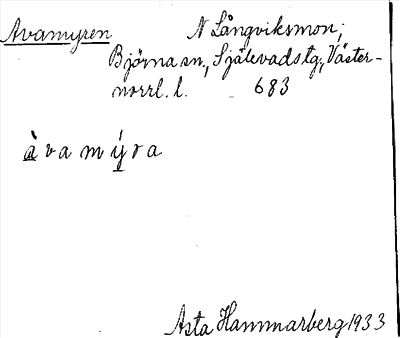 Avamyren N Långviksmon;
Björna sn, Själevads tg; Väster-
norrl. l. 683
àvamýra
Asta Hammarberg 1933